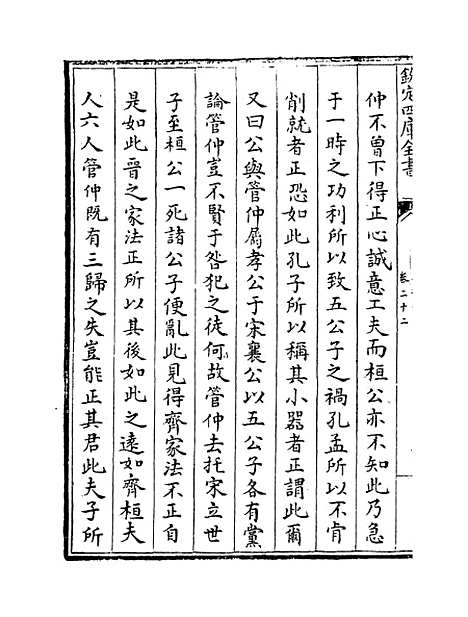 欽定四庫全書
卷二十二
仲不曾下得正心誠意工夫而桓公亦不知此乃急
于一時之功利所以致五公子之禍孔孟所以不肯
削就者正恐如此孔子所以稱其小器者正謂此爾
又曰公與管仲屬孝公于宋襄公以五公子各有黨
論管仲豈不賢于咎犯之徒何故管仲去托宋立世
子至桓公一死諸公子便亂此見得齊家法不正自
是如此晉之家法正所以其後如此之遠如齊桓夫
人六人管仲既有三歸之失豈能正其君此夫子所